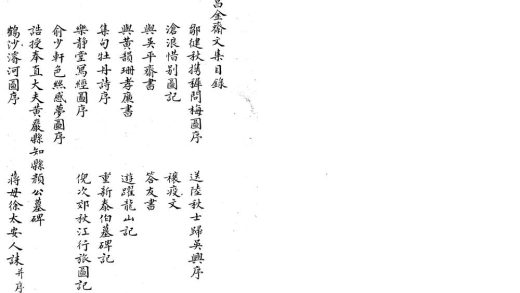 昌金齋文集目錄
鄒健秋攜穉問梅圖序
送陸秋士歸吳興序
滄浪惜别圖記
禳疫文
與吳平齋書
答友書
與黃韻珊孝廉書
遊躍龍山記
集句牡丹詩序
重新泰伯墓碑記
樂靜堂寫經圖序
倪次郊秋江行旅圖記
俞少軒色絲感夢圖序
誥授奉直大夫黃巖縣知縣顏公墓碑
鶴沙濬河圖序
蔣母徐太安人誄并序